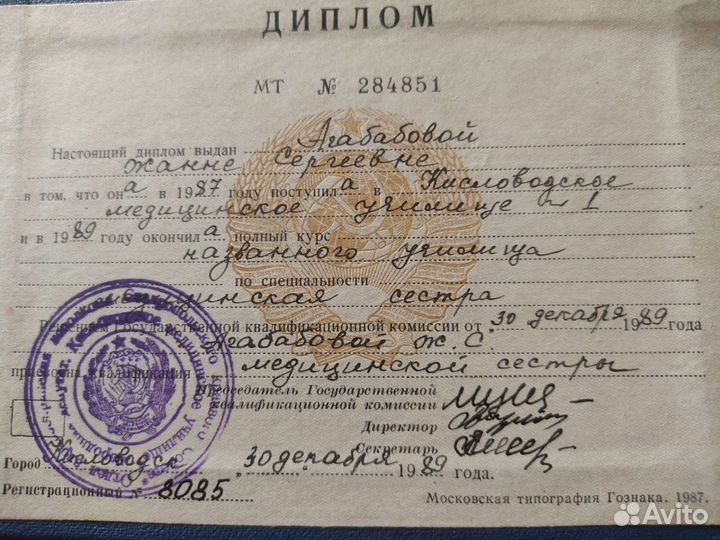 ДИПЛОМ
МТ № 284851
Настоящий диплом выдан Агабабовой
Жанне Сергеевне
в том, что она в 1987 году поступила в Кисловодское
медицинское училище № 1
и в 1989 году окончила полный курс
названного училища
по специальности
сестра
Решением Государственной квалификационной комиссии от "30 декабря 1989 года
Агабабовой Ж. С.
присвоена квалификация медицинской сестры
Председатель Государственной
квалификационной комиссии
Директор
Секретарь
Город Кисловодск "30 декабря 1989 года.
Регистрационный № 8085
Московская типография Гознака. 1987.
Avito